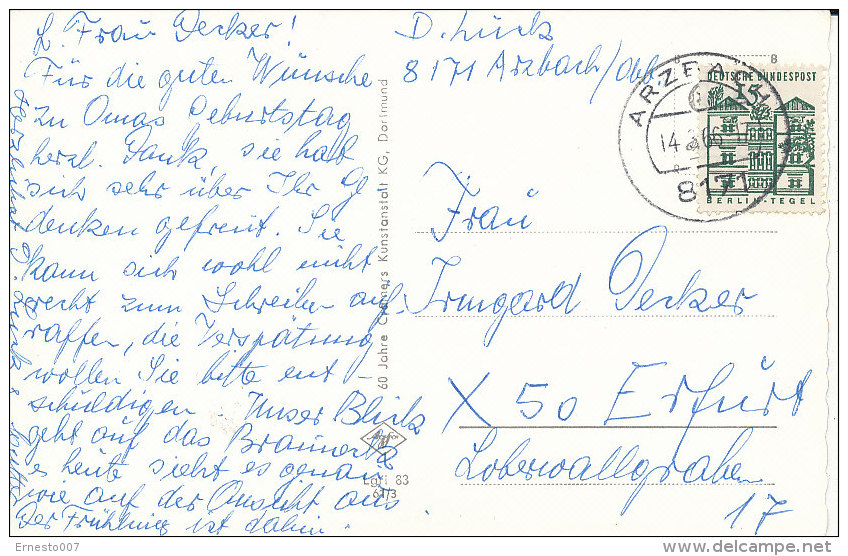 L. Frau Decker!
Für die guten Wünsche
zu Omas Geburtstag
herzl. Dank, sie hat
sich sehr über Ihr Ge
denken gefreut. Sie
kann sich wohl nicht
recht zum Schreiben auf-
raffen, die Verspätung
wollen Sie bitte ent-
schuldigen. Unser Blick
geht auf das Brauneck
heute sieht es genau
wie auf der Ansicht aus
Der Frühling ist dahin.
D. Lück
8171 Arzbach/
60 Jahre Cramers Kunstanstalt KG, Dortmund
Lgri 83
61/3
ARZBA
14.3.66
8171
DEUTSCHE BUNDESPOST
15
BERLIN-TEGEL
8
Frau
Irmgard Decker
X 50 Erfurt
Loberwallgraben
17
Ernesto007
www.delcampe.net